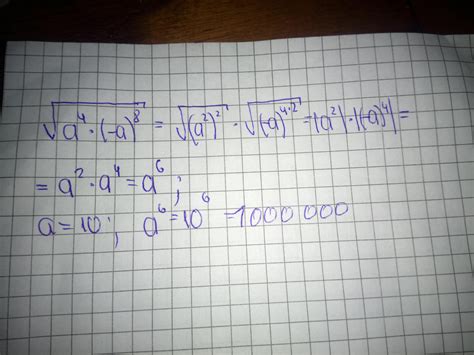 √(a⁴·(-a)⁸) = √((a²)²) · √((-a)^(4·2)) = |a²|·|(-a)⁴| =
= a²·a⁴ = a⁶ ;
a = 10 ; a⁶ = 10⁶ = 1000 000